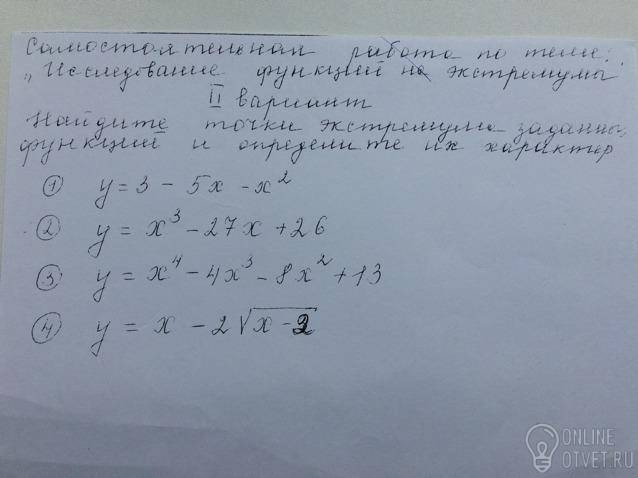 Самостоятельная работа по теме:
„Исследование функций на экстремумы
II вариант
Найдите точки экстремума заданных
функций и определите их характер
① y = 3 - 5x - x²
② y = x³ - 27x + 26
③ y = x⁴ - 4x³ - 8x² + 13
④ y = x - 2√(x - 2)
ONLINE
OTVET.RU